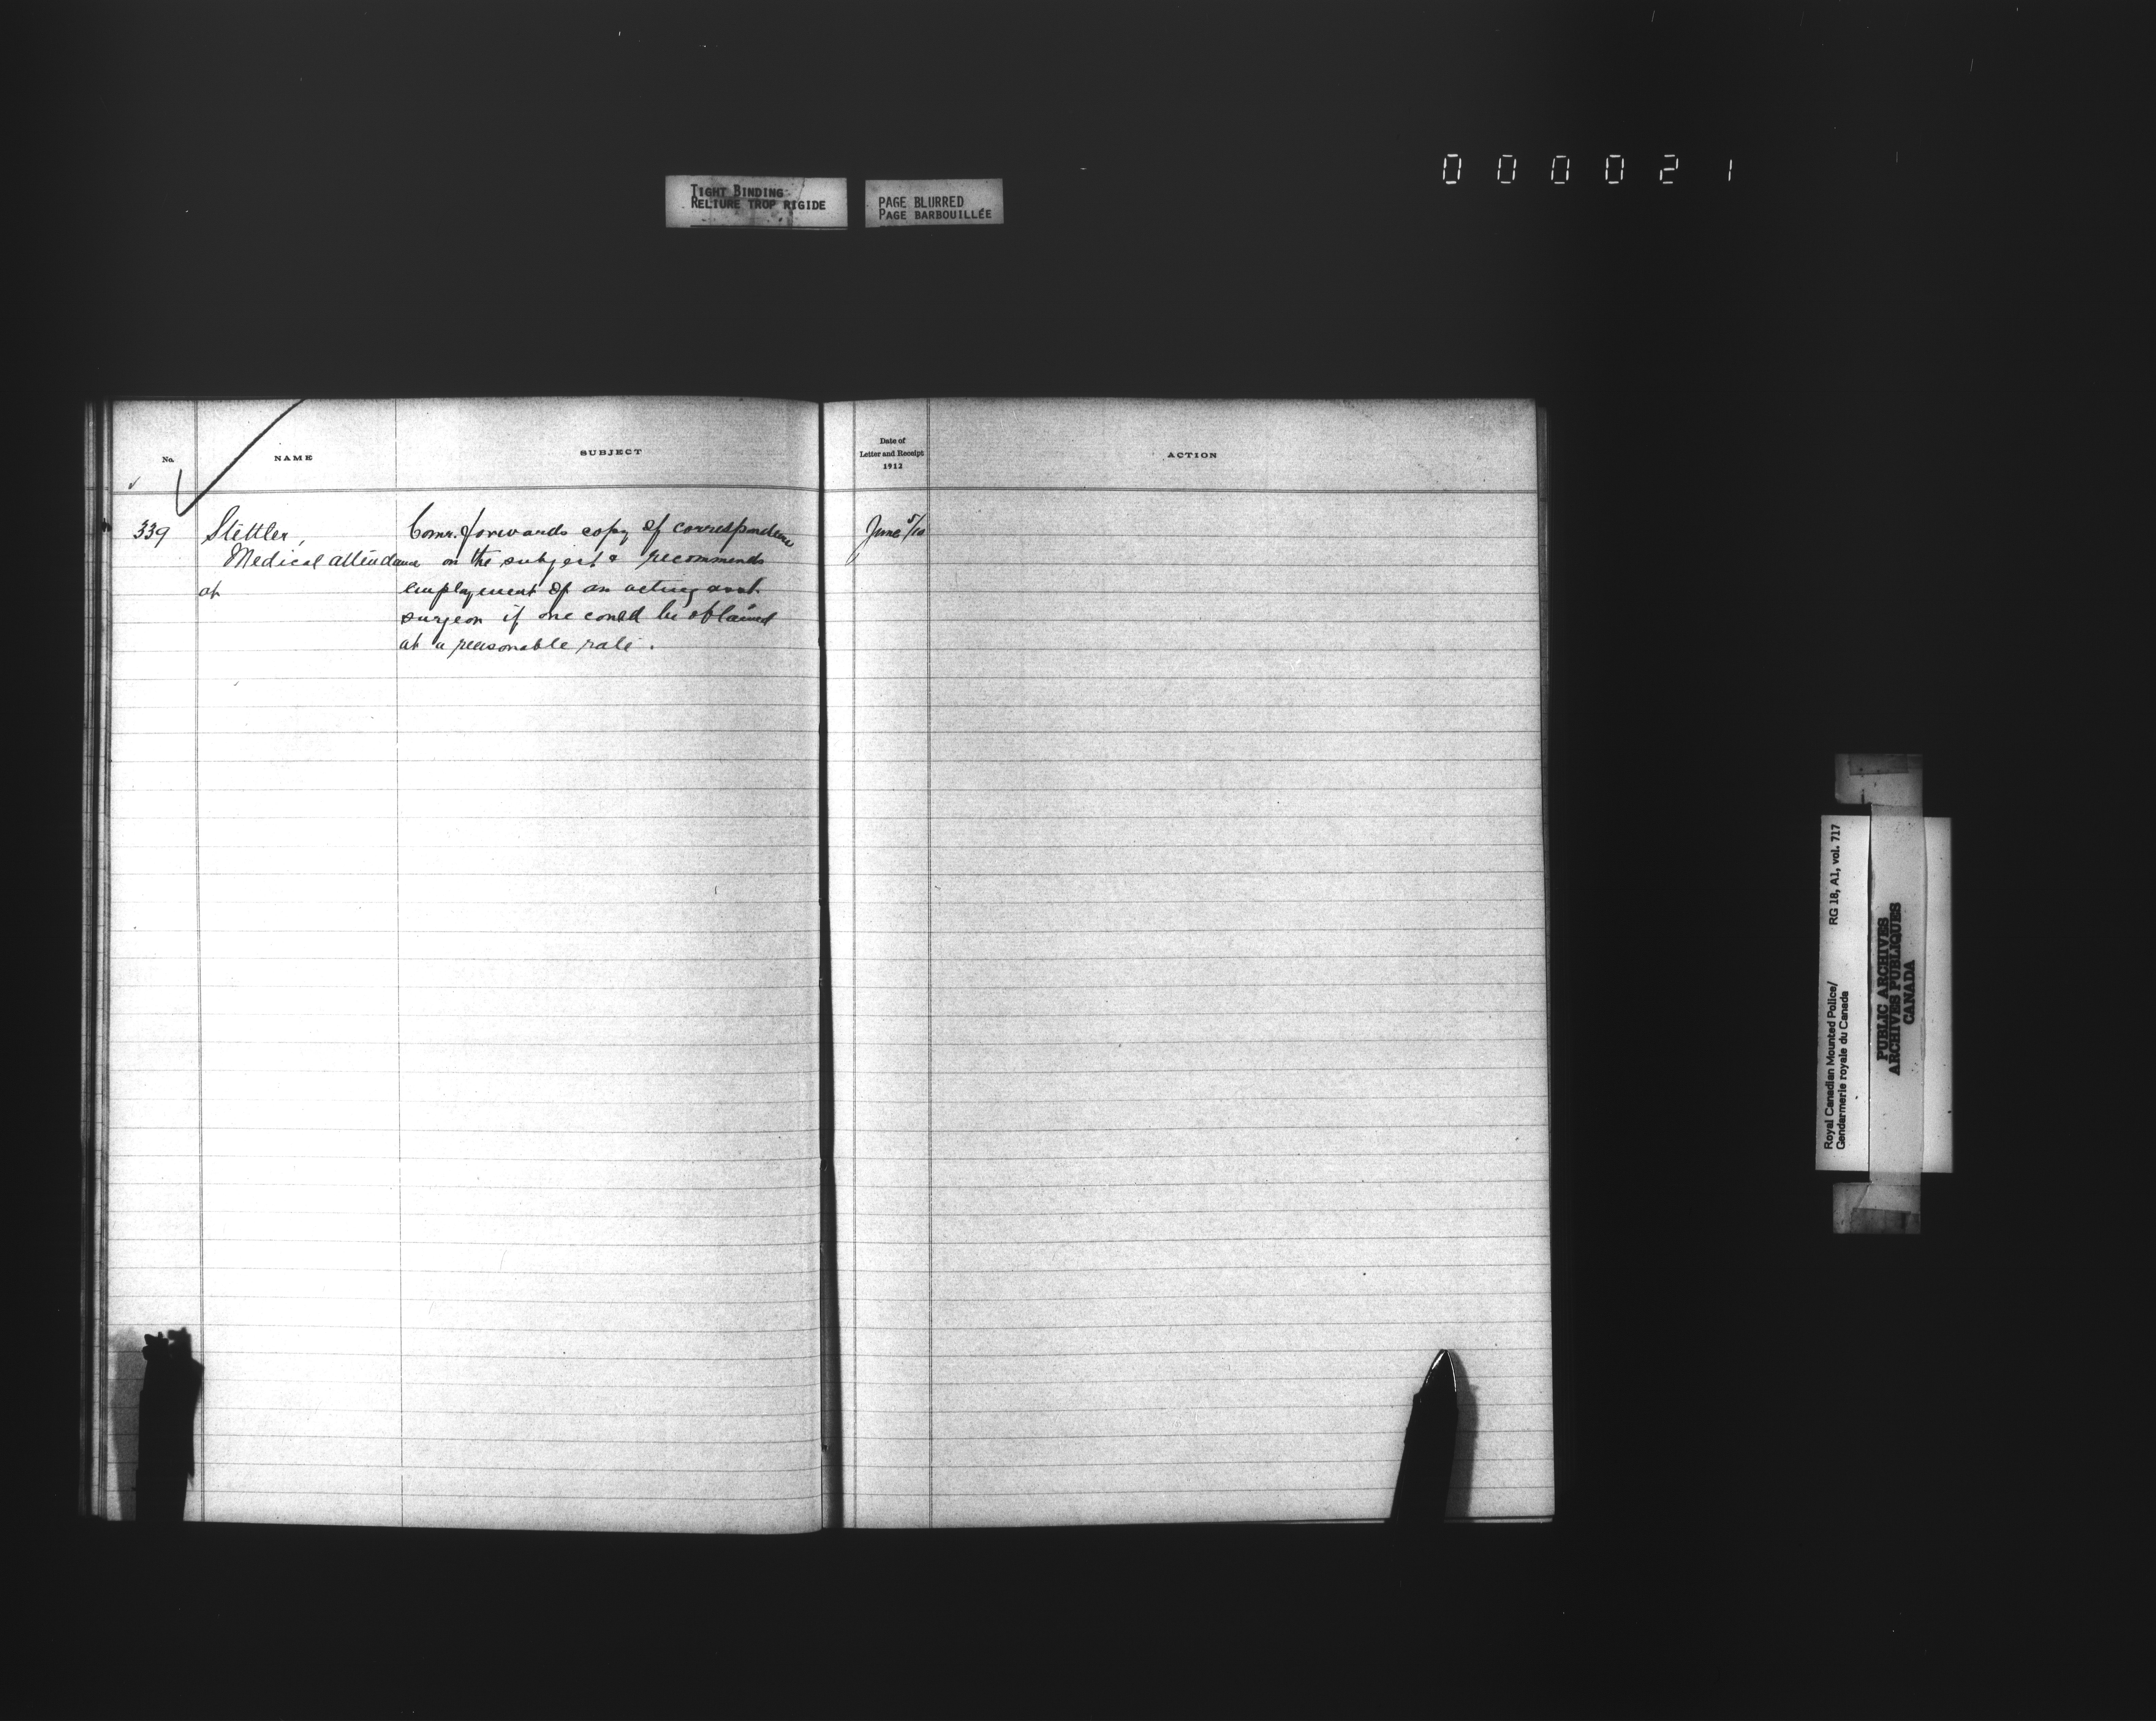 000021
TIGHT BINDING
RELIURE TROP RIGIDE
PAGE BLURRED
PAGE BARBOUILLÉE
No.
NAME
SUBJECT
Date of
Letter and Receipt
1912
ACTION
339
Stettler,
Medical attendance
at
Comr. forwards copy of correspondence
on the subject & recommends
employment of an acting asst.
surgeon if one could be obtained
at a reasonable rate.
June 5/10
Royal Canadian Mounted Police/
Gendarmerie royale du Canada
RG 18, A1, vol. 717
PUBLIC ARCHIVES
ARCHIVES PUBLIQUES
CANADA